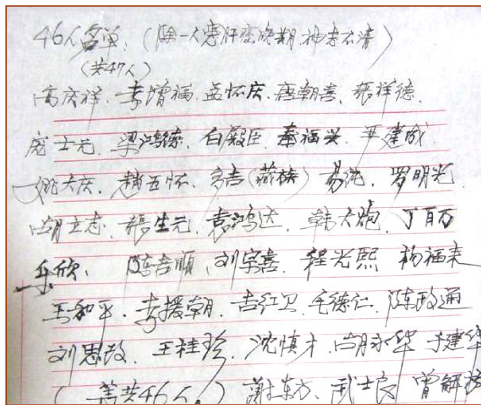 46人名单：（除一人患肝变晚期，神志不清）
（共47人）
高庆祥、李增福、孟怀庆、唐朝喜、张祥德、
庞士元、梁鸿德、白殿臣、秦福兴、尹建成
姚大庆、赵五怀、多吉（藏族）易沈、罗明光
胡立志、张生元、袁鸿达、韩大炮、丁百万
乐欣、陈吉顺、刘宇喜、程光熙、杨福来
王和平、李援朝、吉红卫、毛德仁、陈政通
刘思故、王桂珍、沈慎才、胡永华、于建华
（共46人。）谢东方、武士良、曾解放